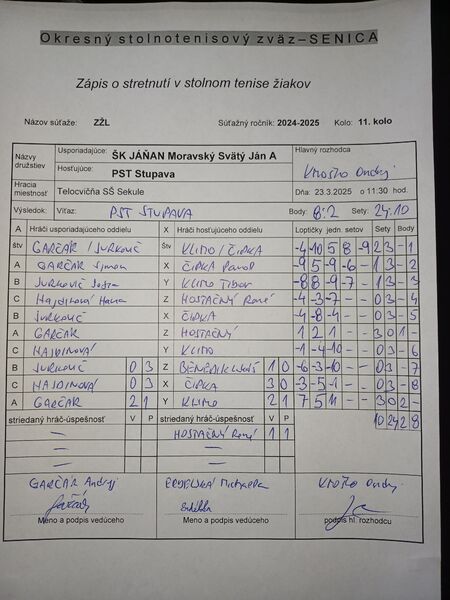 Okresný stolnotenisový zväz–SENICA
Zápis o stretnutí v stolnom tenise žiakov
Názov súťaže: ZŽL Súťažný ročník: 2024-2025 Kolo: 11. kolo
Názvy družstiev Usporiadajúce: ŠK JÁŇAN Moravský Svätý Ján A Hlavný rozhodca
Hosťujúce: PST Stupava
Hracia miestnosť Telocvičňa SŠ Sekule Dňa: 23.3.2025 o 11:30 hod.
Výsledok: Víťaz: PST STUPAVA Body: 8:2 Sety: 24:10
A Hráči usporiadajúceho oddielu X Hráči hosťujúceho oddielu Loptičky jedn. setov Sety Body
štv GARČÁR / JURKOVIČ Štv KLIMO / ČIPKA -4 -10 5 8 -9 2 3 - 1
A GARČÁR X ČIPKA -9 5 -9 -6 - 1 3 - 2
B JURKOVIČ Y KLIMO Tibor -8 8 -9 -7 - 1 3 - 3
C Hana Z HOSTAČNÝ René -4 -3 -7 - - 0 3 - 4
B JURKOVIČ X ČIPKA -4 -8 -4 - - 0 3 - 5
A GARČÁR Z HOSTAČNÝ 1 2 1 - - 3 0 1 -
C HAJDINOVÁ Y KLIMO -1 -4 -10 - - 0 3 - 6
B JURKOVIČ 0 3 Z 1 0 -6 -3 -10 - - 0 3 - 7
C HAJDINOVÁ 0 3 X ČIPKA 3 0 -3 -5 -1 - - 0 3 - 8
A GARČÁR 2 1 Y KLIMO 2 1 7 5 11 - - 3 0 2 -
striedaný hráč-úspešnosť V P striedaný hráč-úspešnosť V P 10 24 2 8
HOSTAČNÝ René 1 1
GARČÁR Andrej Michaela
Meno a podpis vedúceho Meno a podpis vedúceho podpis hl. rozhodcu